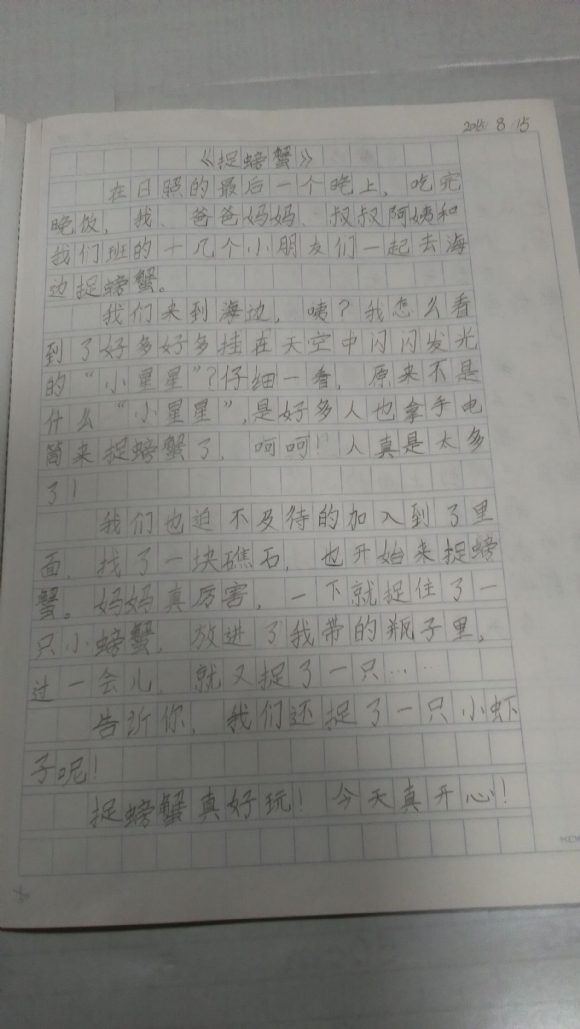 8.15
《捉螃蟹》
在日照的最后一个晚上，吃完
晚饭，我、爸爸妈妈、叔叔阿姨和
我们班的十几个小朋友们一起去海
边捉螃蟹。
我们来到海边，咦？我怎么看
到了好多好多挂在天空中闪闪发光
的“小星星”？仔细一看，原来不是
什么“小星星”，是好多人也拿手电
筒来捉螃蟹了，呵呵！人真是太多
了！
我们也迫不及待的加入到了里
面，找了一块礁石，也开始来捉螃
蟹。妈妈真厉害，一下就捉住了一
只小螃蟹，放进了我带的瓶子里，
过一会儿，就又捉了一只……
告诉你，我们还捉了一只小虾
子呢！
捉螃蟹真好玩！今天真开心！